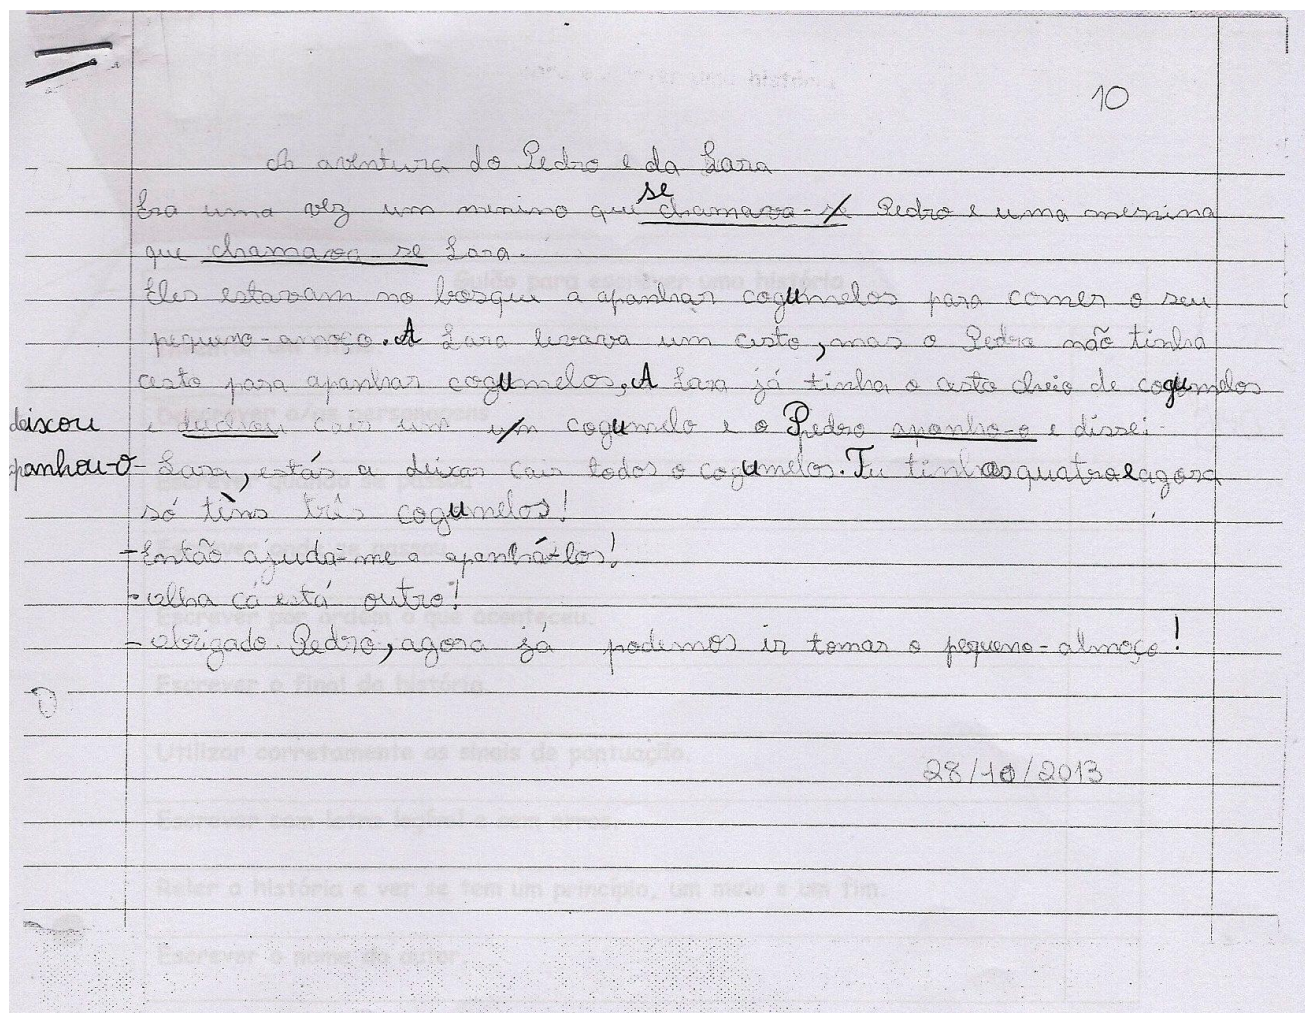 10
A aventura do Pedro e da Lara
se
Era uma vez um menino que chamava-se Pedro e uma menina
que chamava se Lara.
Eles estavam no bosque a apanhar cogumelos para comer o seu
pequeno-amoço. A Lara levava um cesto, mas o Pedro não tinha
cesto para apanhar cogumelos, A Lara já tinha o cesto cheio de cogumelos
deixou e cair um um cogumelo e o Pedro apanho-o e disse:
apanhou-o - Lara, estás a deixar cair todos o cogumelos. Tu tinhas quatro e agora
só téns três cogumelos!
- Então ajuda-me a apanhá-los!
- olha cá está outro!
- obrigado Pedro, agora já podemos ir tomar o pequeno-almoço!
28/10/2013
Guião para escrever uma história
Escrever por ordem o que aconteceu.
Escrever o final da história.
Utilizar corretamente os sinais de pontuação.
Escrever com letra legível e sem erros.
Reler a história e ver se tem um princípio, um meio e um fim.
Escrever o nome do autor.